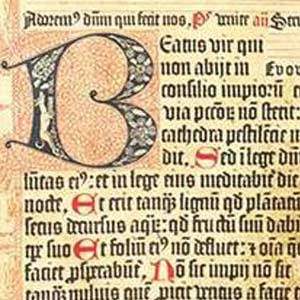 Adorem⁹ dūm qui fecit nos, P̄s venite añ Ser
Beatus vir qui
non abijt in Evov
consilio impiorū e
via pctoꝝ nō stetit:
cathedra pestilētie n
dit, Sed ī lege dn̄i
lūtas ei⁹: et in lege eius meditabit̄ die
nocte, Et erit tanq̄ lignū qd̄ plātatū
secus decursus aqꝝ: qd̄ fructū suū dabit
tꝑe suo Et foliū ei⁹ nō defluet: ⁊ oīa q̄
faciet ꝓsꝑabūt̄, Nō sic impij nō sic
tanq̄ puluis quē ꝓicit ventus a facie t